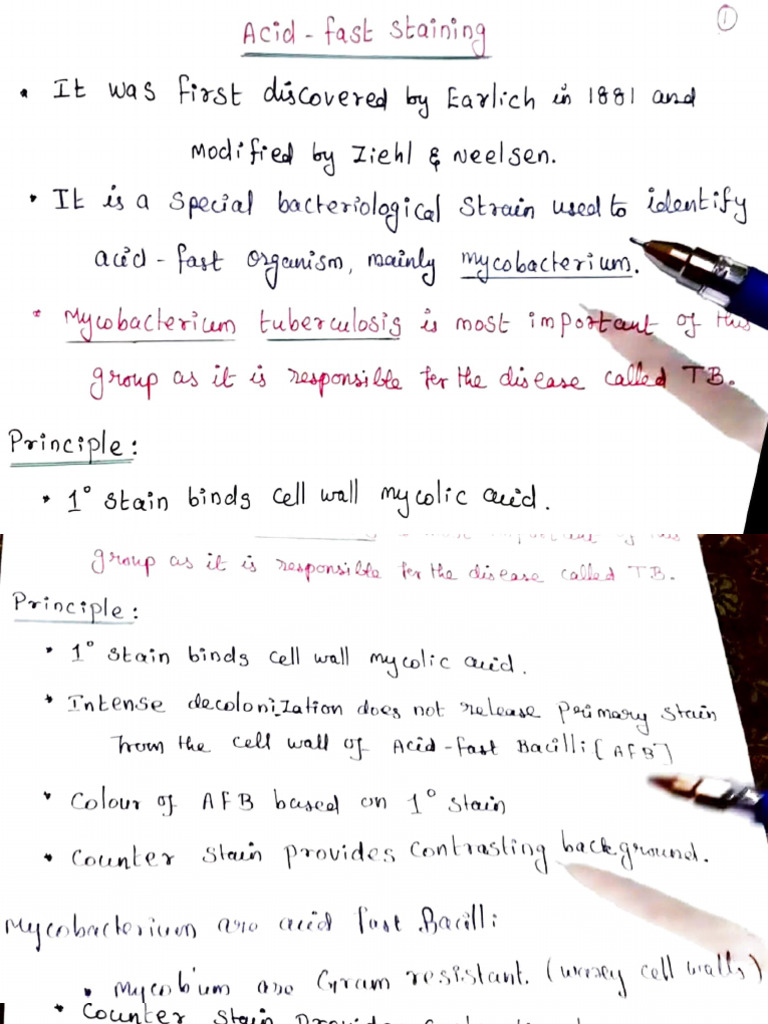 1
Acid - fast Staining
• It was first discovered by Earlich in 1881 and
modified by Ziehl & Neelsen.
• It is a special bacteriological Strain used to identify
acid - fast organism, mainly mycobacterium.
* Mycobacterium tuberculosis is most important of this
group as it is responsible for the disease called TB.
Principle:
• 1° stain binds cell wall mycolic acid.
group as it is responsible for the disease called TB.
Principle:
• 1° stain binds cell wall mycolic acid.
• Intense decolonization does not release primary stain
from the cell wall of Acid - fast Bacilli [AFB]
• Colour of AFB based on 1° stain
• Counter stain provides contrasting background.
Mycobacterium are acid fast Bacilli
• Mycob'um are Gram resistant. (waxey cell walls)
• Counter stain provides